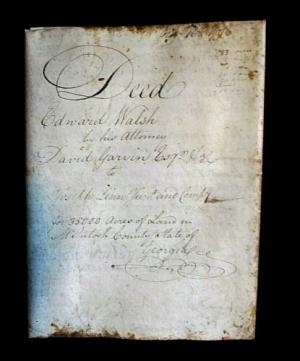 Deed
Edward Walsh
by his Attorney
David Garvin Esqr
to
Linn and Compy
for 35000 Acres of Land in
McIntosh County State of
Georgia